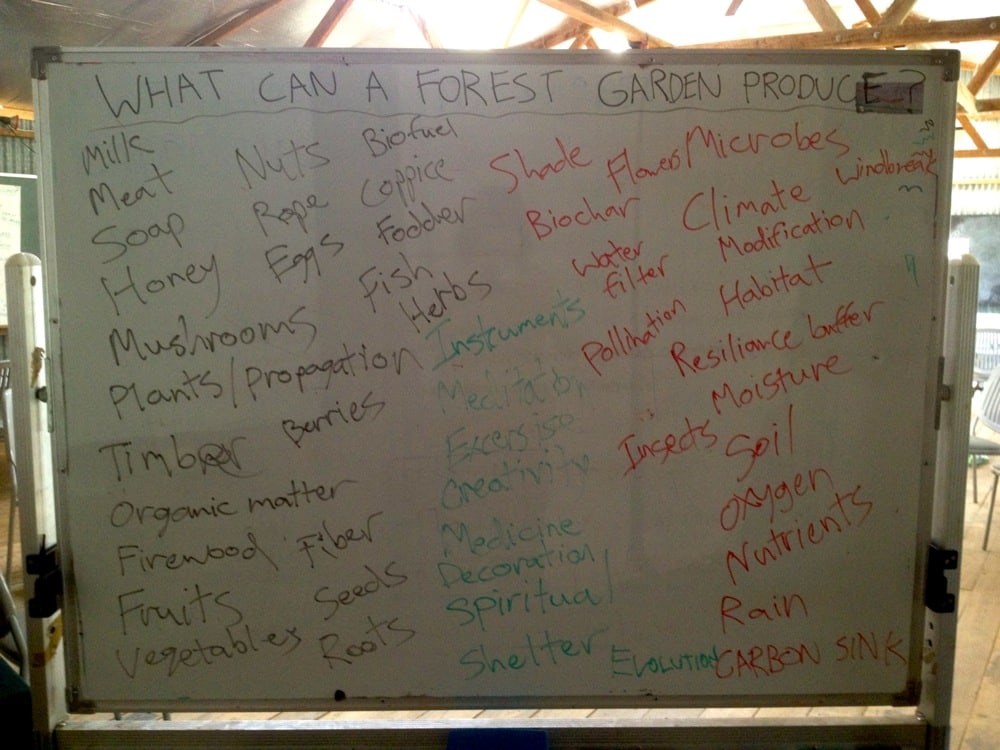 WHAT CAN A FOREST GARDEN PRODUCE?
Milk
Meat
Soap
Honey
Mushrooms
Plants/propagation
Timber
Berries
Organic matter
Firewood
Fiber
Fruits
Seeds
Vegetables
Roots
Nuts
Rope
Eggs
Biofuel
Coppice
Fodder
Fish
Herbs
Instruments
Meditation
Excersise
Creativity
Medicine
Decoration
Spiritual
Shelter
EVOLUTION
Shade
Flowers
Biochar
Water
filter
Pollination
Insects
Microbes
Windbreak
Climate
Modification
Habitat
Resiliance buffer
Moisture
Soil
Oxygen
Nutrients
Rain
CARBON SINK